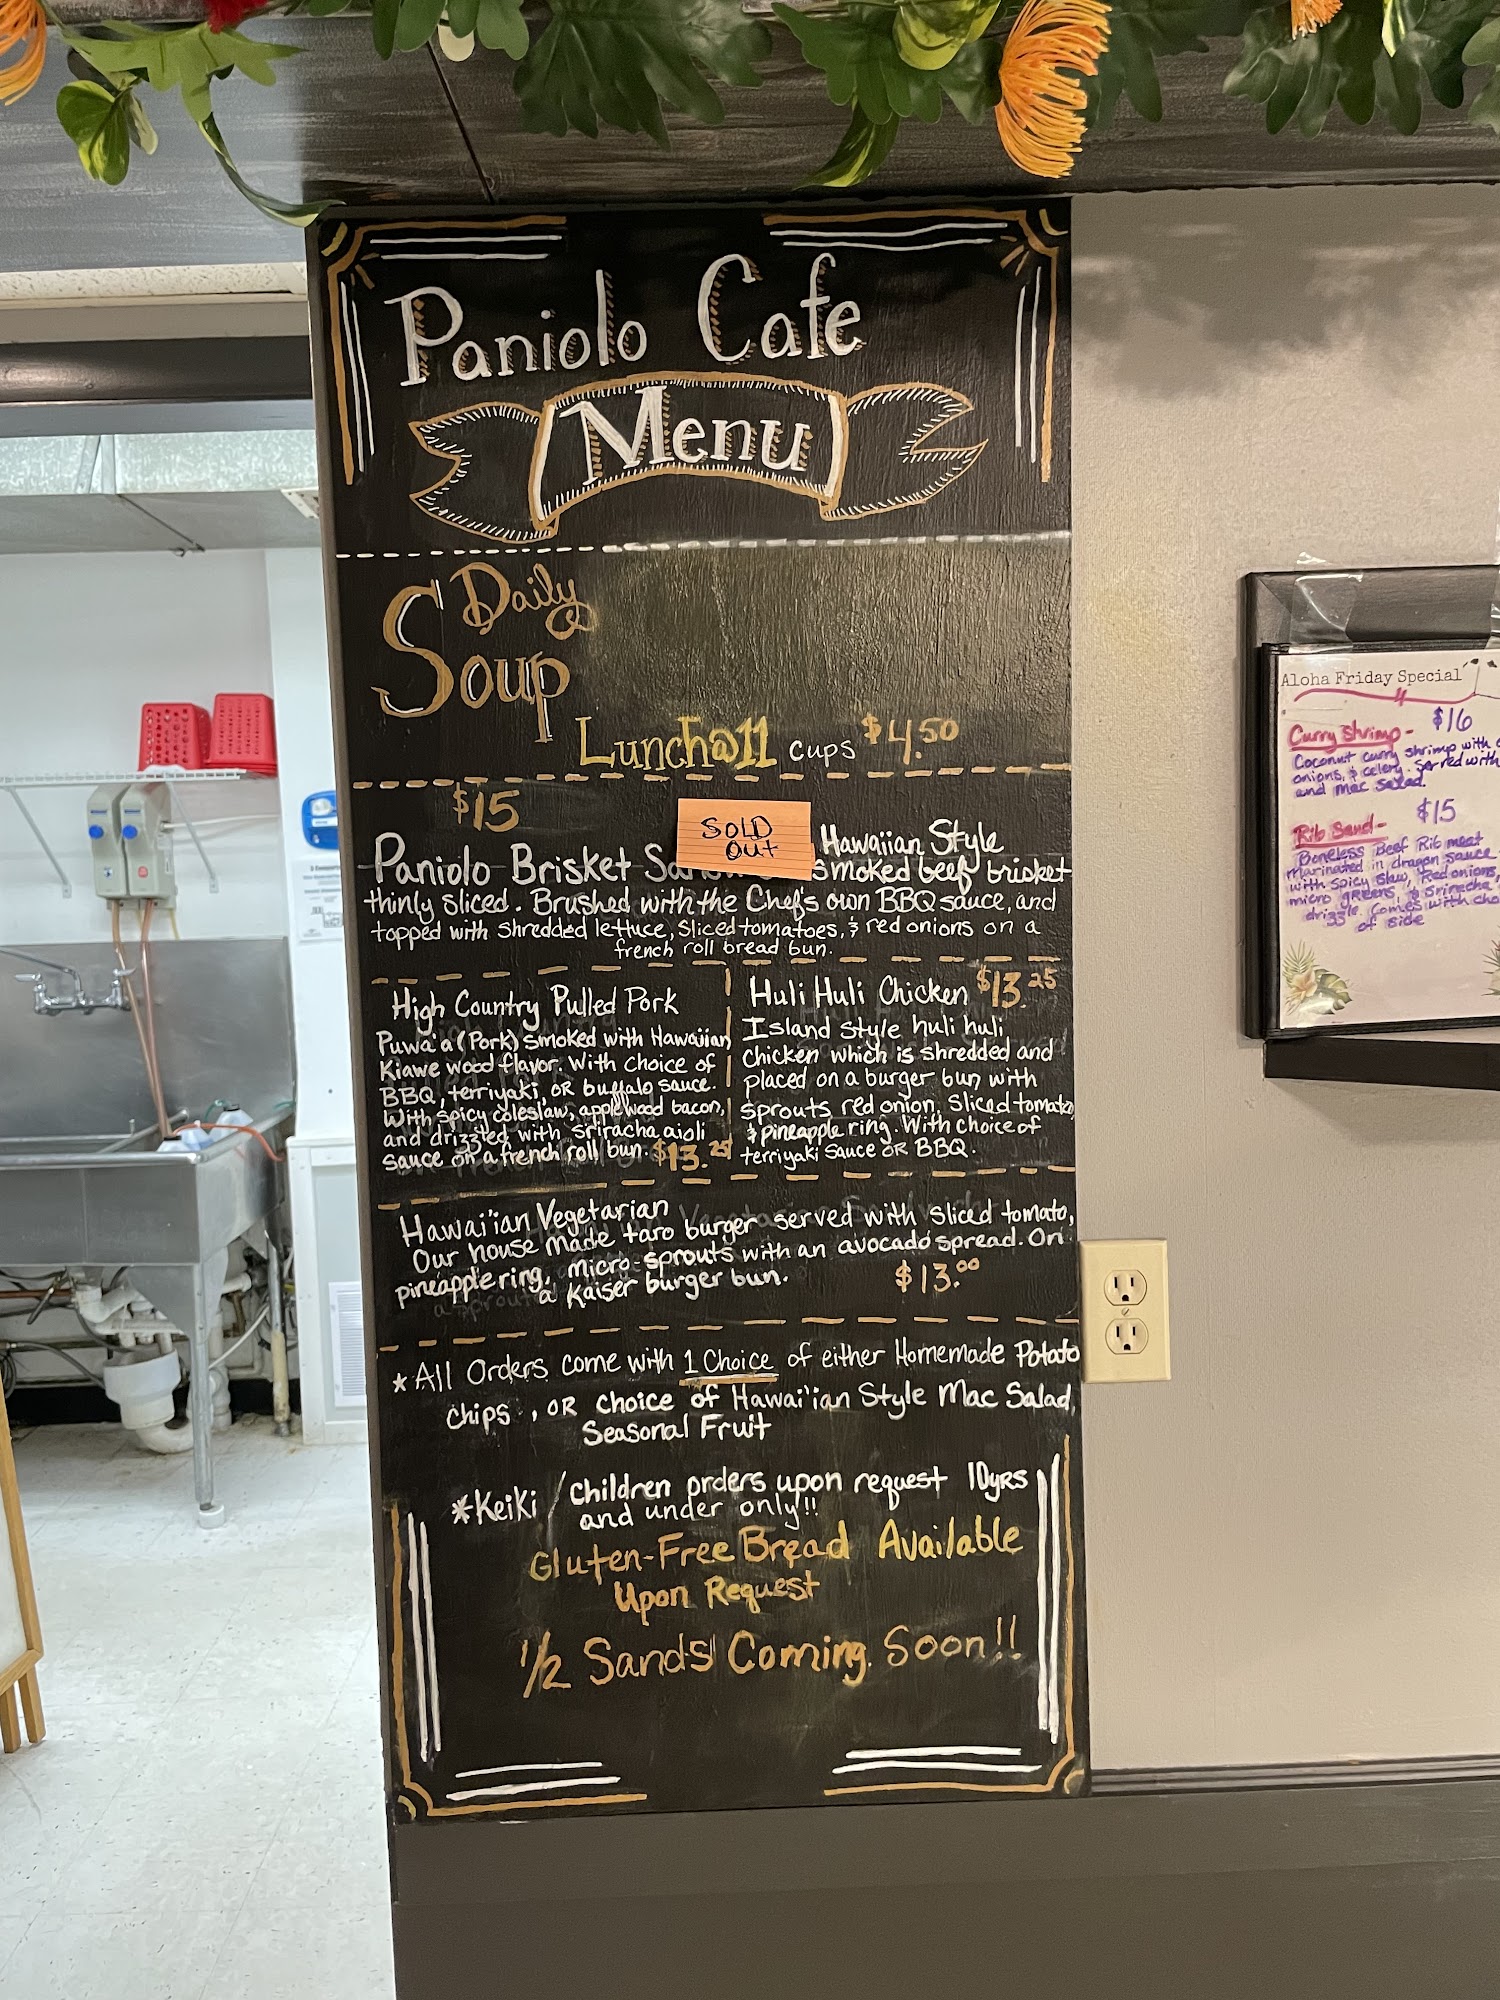 Paniolo Cafe
Menu
Daily
Soup
Lunch@11 cups $4.50
$15
SOLD
Out
Paniolo Brisket Hawaiian Style
Smoked beef brisket
thinly sliced. Brushed with the Chef's own BBQ sauce, and
topped with shredded lettuce, sliced tomatoes, & red onions on a
french roll bread bun.
High Country Pulled Pork
Puwa'a (Pork) smoked with Hawaiian
Kiawe wood flavor. With choice of
BBQ, terriyaki, OR buffalo sauce.
With spicy coleslaw, applewood bacon,
and drizzled with sriracha aioli
sauce on a french roll bun. $13.25
Huli Huli Chicken $13.25
Island style huli huli
chicken which is shredded and
placed on a burger bun with
sprouts, red onion, sliced tomato
& pineapple ring. With choice of
terriyaki sauce OR BBQ.
Hawai'ian Vegetarian
Our house made taro burger served with sliced tomato,
pineapple ring, micro-sprouts with an avocado spread. On
a Kaiser burger bun. $13.00
*All Orders come with 1 Choice of either Homemade Potato
chips, OR choice of Hawai'ian Style Mac Salad,
Seasonal Fruit
*Keiki / children orders upon request 10yrs
and under only!!
Gluten-Free Bread Available
Upon Request
1/2 Sands Coming Soon!!
Aloha Friday Special
$16
Curry Shrimp-
Coconut curry shrimp with
onions, & celery. Served with
and mac salad.
$15
Rib Sand-
Boneless Beef Rib meat
marinated in dragon sauce
with spicy slaw, red onions,
micro greens, & sriracha
drizzle. Comes with
of side